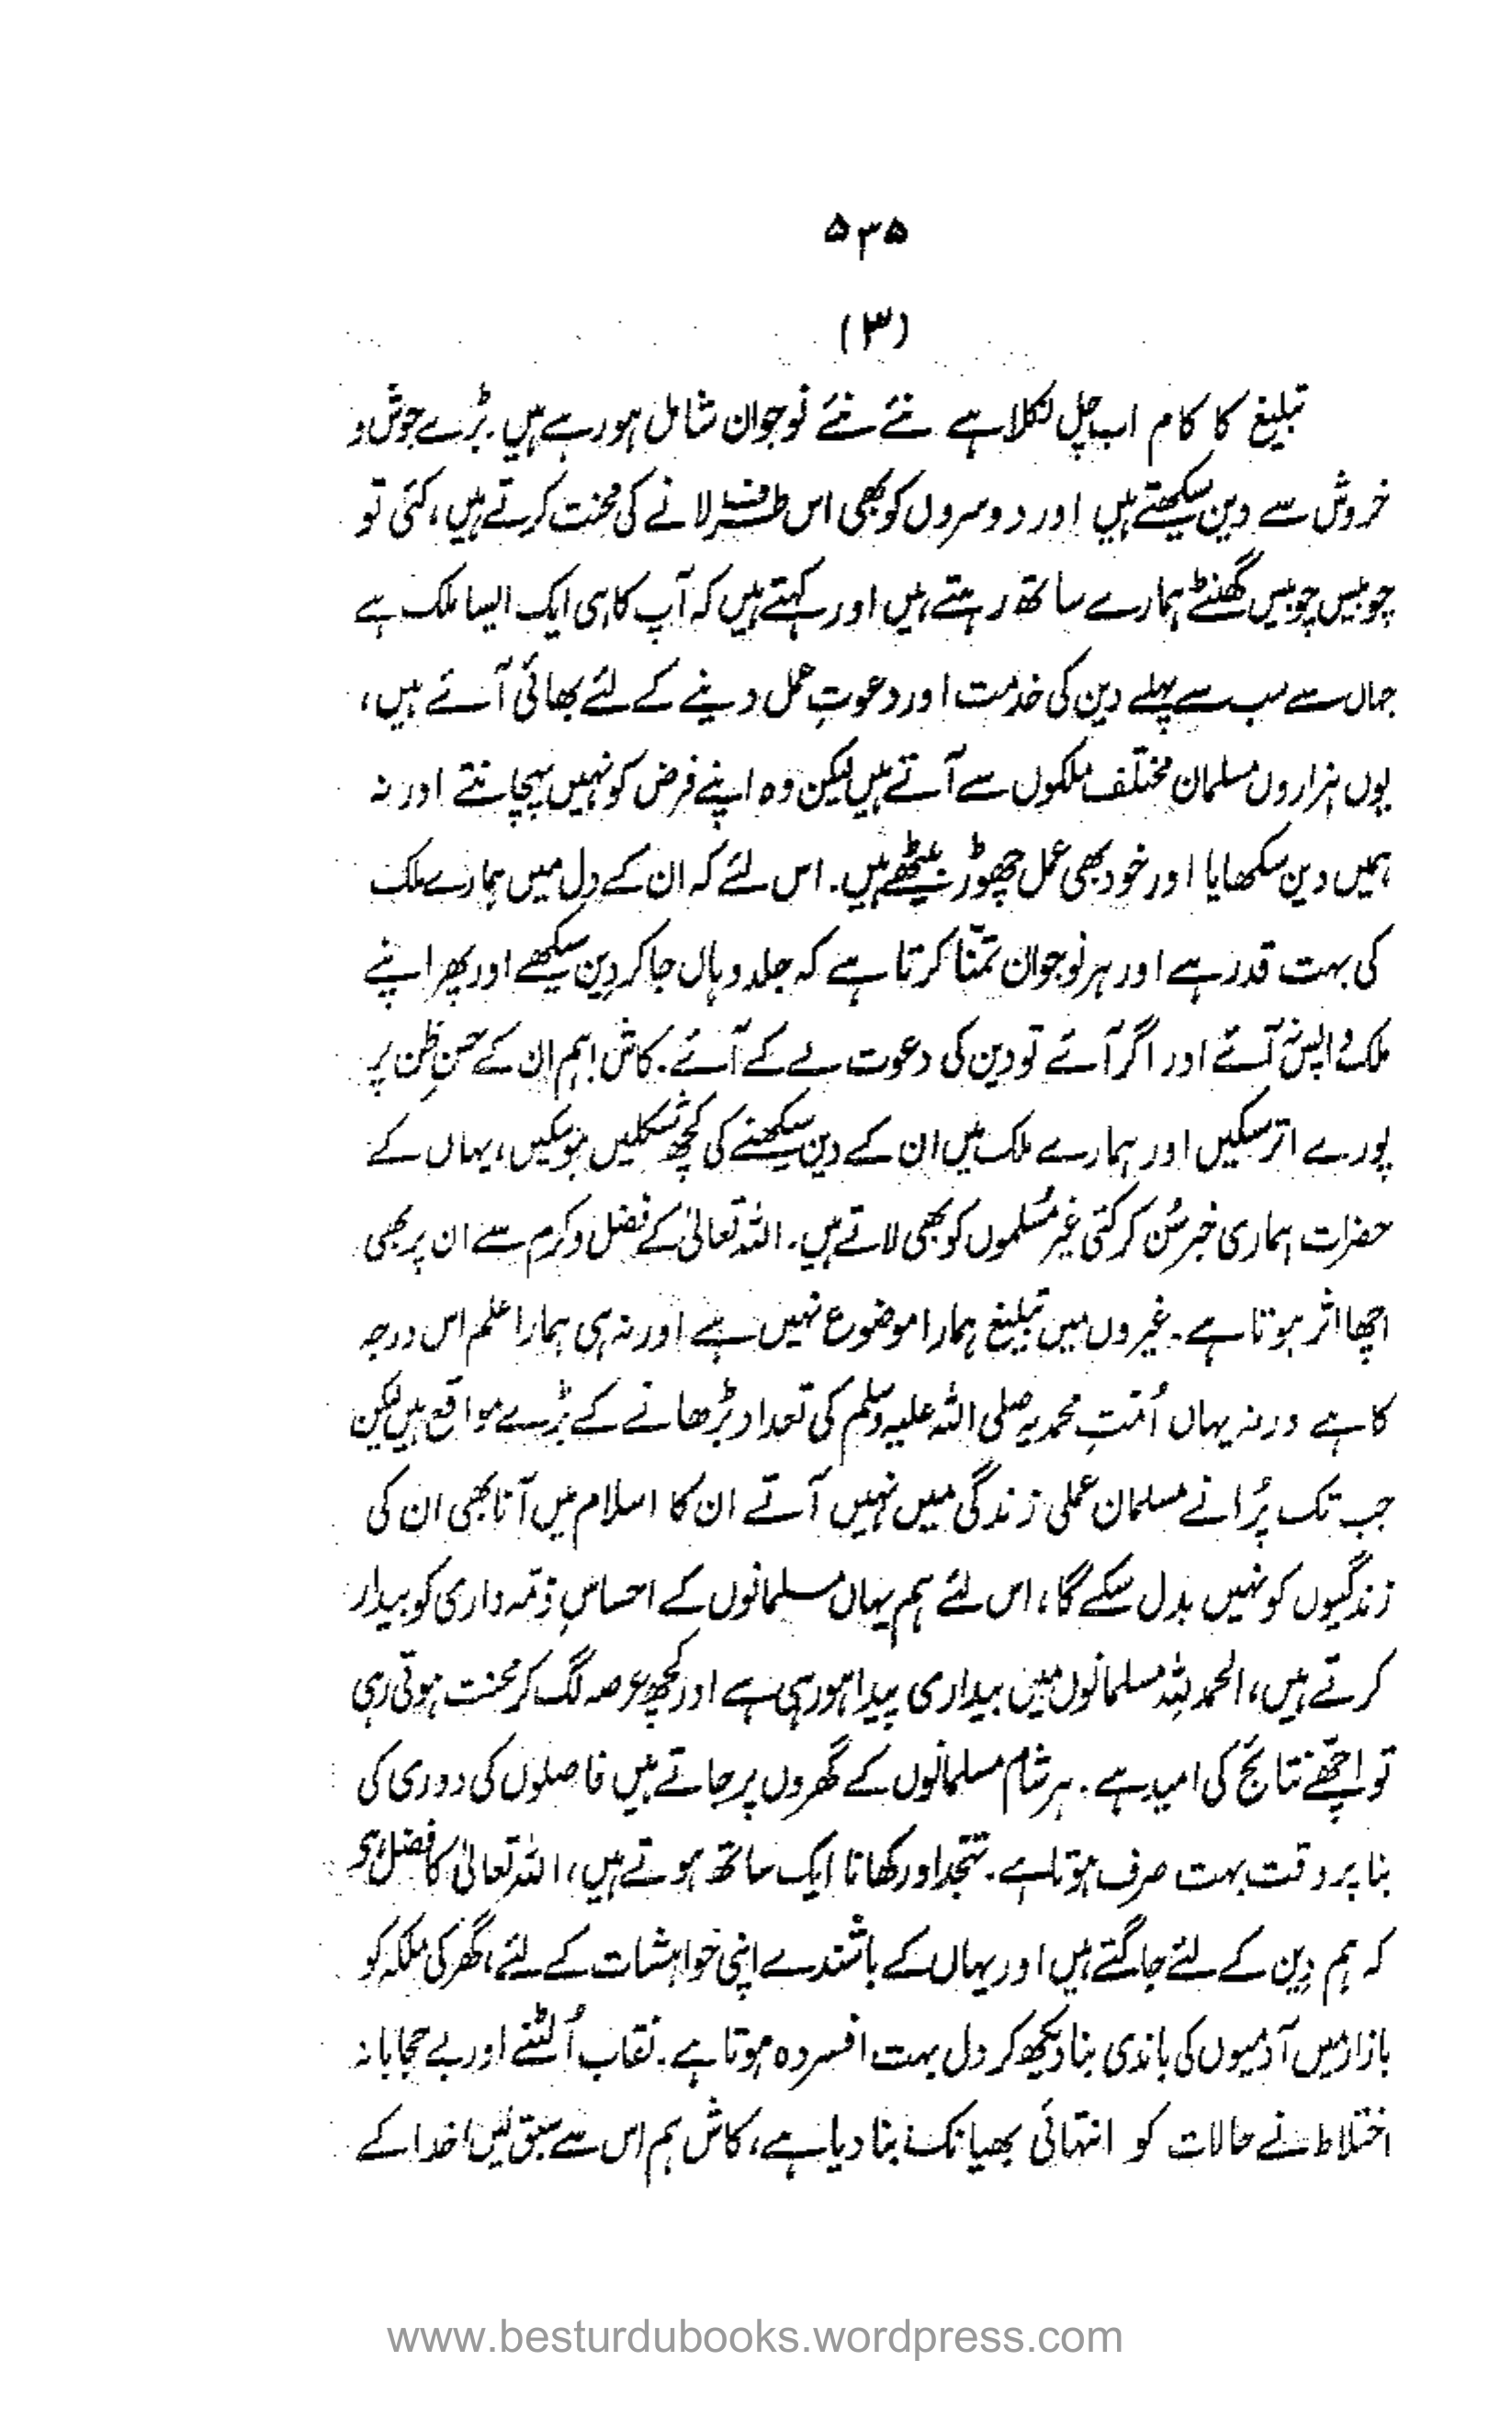 ۵۳۵
(۳)
تبلیغ کا کام اب چل نکلا ہے نئے نئے نوجوان شامل ہو رہے ہیں۔ بڑے جوش و
خروش سے دین سیکھتے ہیں اور دوسروں کو بھی اس طرف لانے کی محنت کرتے ہیں، کئی تو
چوبیس چوبیس گھنٹے ہمارے ساتھ رہتے ہیں اور کہتے ہیں کہ آپ کا ہی ایک ایسا ملک ہے
جہاں سے سب سے پہلے دین کی خدمت اور دعوتِ عمل دینے کے لئے بھائی آئے ہیں،
یوں ہزاروں مسلمان مختلف ملکوں سے آتے ہیں لیکن وہ اپنے فرض کو نہیں پہچانتے اور نہ
ہمیں دین سکھایا اور خود بھی عمل چھوڑ بیٹھے ہیں۔ اس لئے کہ ان کے دل میں ہمارے ملک
کی بہت قدر ہے اور ہر نوجوان تمنّا کرتا ہے کہ جلد وہاں جا کر دین سیکھے اور پھر اپنے
ملک واپس آئے اور اگر آئے تو دین کی دعوت لے کے آئے۔ کاش! ہم ان کے حسنِ ظن پر
پورے اتر سکیں اور ہمارے ملک میں ان کے دین سیکھنے کی کچھ شکلیں ہو سکیں، یہاں کے
حضرات ہماری خبر سُن کر کئی غیر مُسلموں کو بھی لاتے ہیں۔ اللہ تعالیٰ کے فضل و کرم سے ان پر بھی
اچھا اثر ہوتا ہے۔ غیروں میں تبلیغ ہمارا موضوع نہیں ہے اور نہ ہی ہمارا علم اس درجہ
کا ہے ورنہ یہاں اُمتِ محمدیہ صلی اللہ علیہ وسلم کی تعداد بڑھانے کے بڑے مواقع ہیں لیکن
جب تک پُرانے مسلمان عملی زندگی میں نہیں آتے ان کا اسلام میں آنا بھی ان کی
زندگیوں کو نہیں بدل سکے گا، اس لئے ہم یہاں مسلمانوں کے احساسِ ذمّہ داری کو بیدار
کرتے ہیں، الحمد للہ مسلمانوں میں بیداری پیدا ہو رہی ہے اور کچھ عرصہ لگ کر محنت ہوتی رہی
تو اچھّے نتائج کی امید ہے۔ ہر شام مسلمانوں کے گھروں پر جاتے ہیں فاصلوں کی دوری کی
بنا پر وقت بہت صرف ہوتا ہے۔ تہجد اور کھانا ایک ساتھ ہوتے ہیں، اللہ تعالیٰ کا فضل ہے
کہ ہم دین کے لئے جاگتے ہیں اور یہاں کے باشندے اپنی خواہشات کے لئے، گھر کی ملکہ کو
بازار میں آدمیوں کی باندی بنا دیکھ کر دل بہت افسردہ ہوتا ہے۔ نقاب اُلٹنے اور بے حجابانہ
اختلاط نے حالات کو انتہائی بھیانک بنا دیا ہے، کاش ہم اس سے سبق لیں! خدا کے
www.besturdubooks.wordpress.com